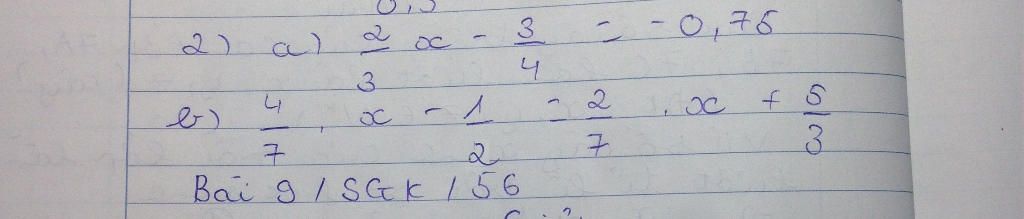 2) a) 2/3 x - 3/4 = -0,75
b) 4/7 . x - 1/2 = 2/7 . x + 5/3
Bài 9 / SGK / 56